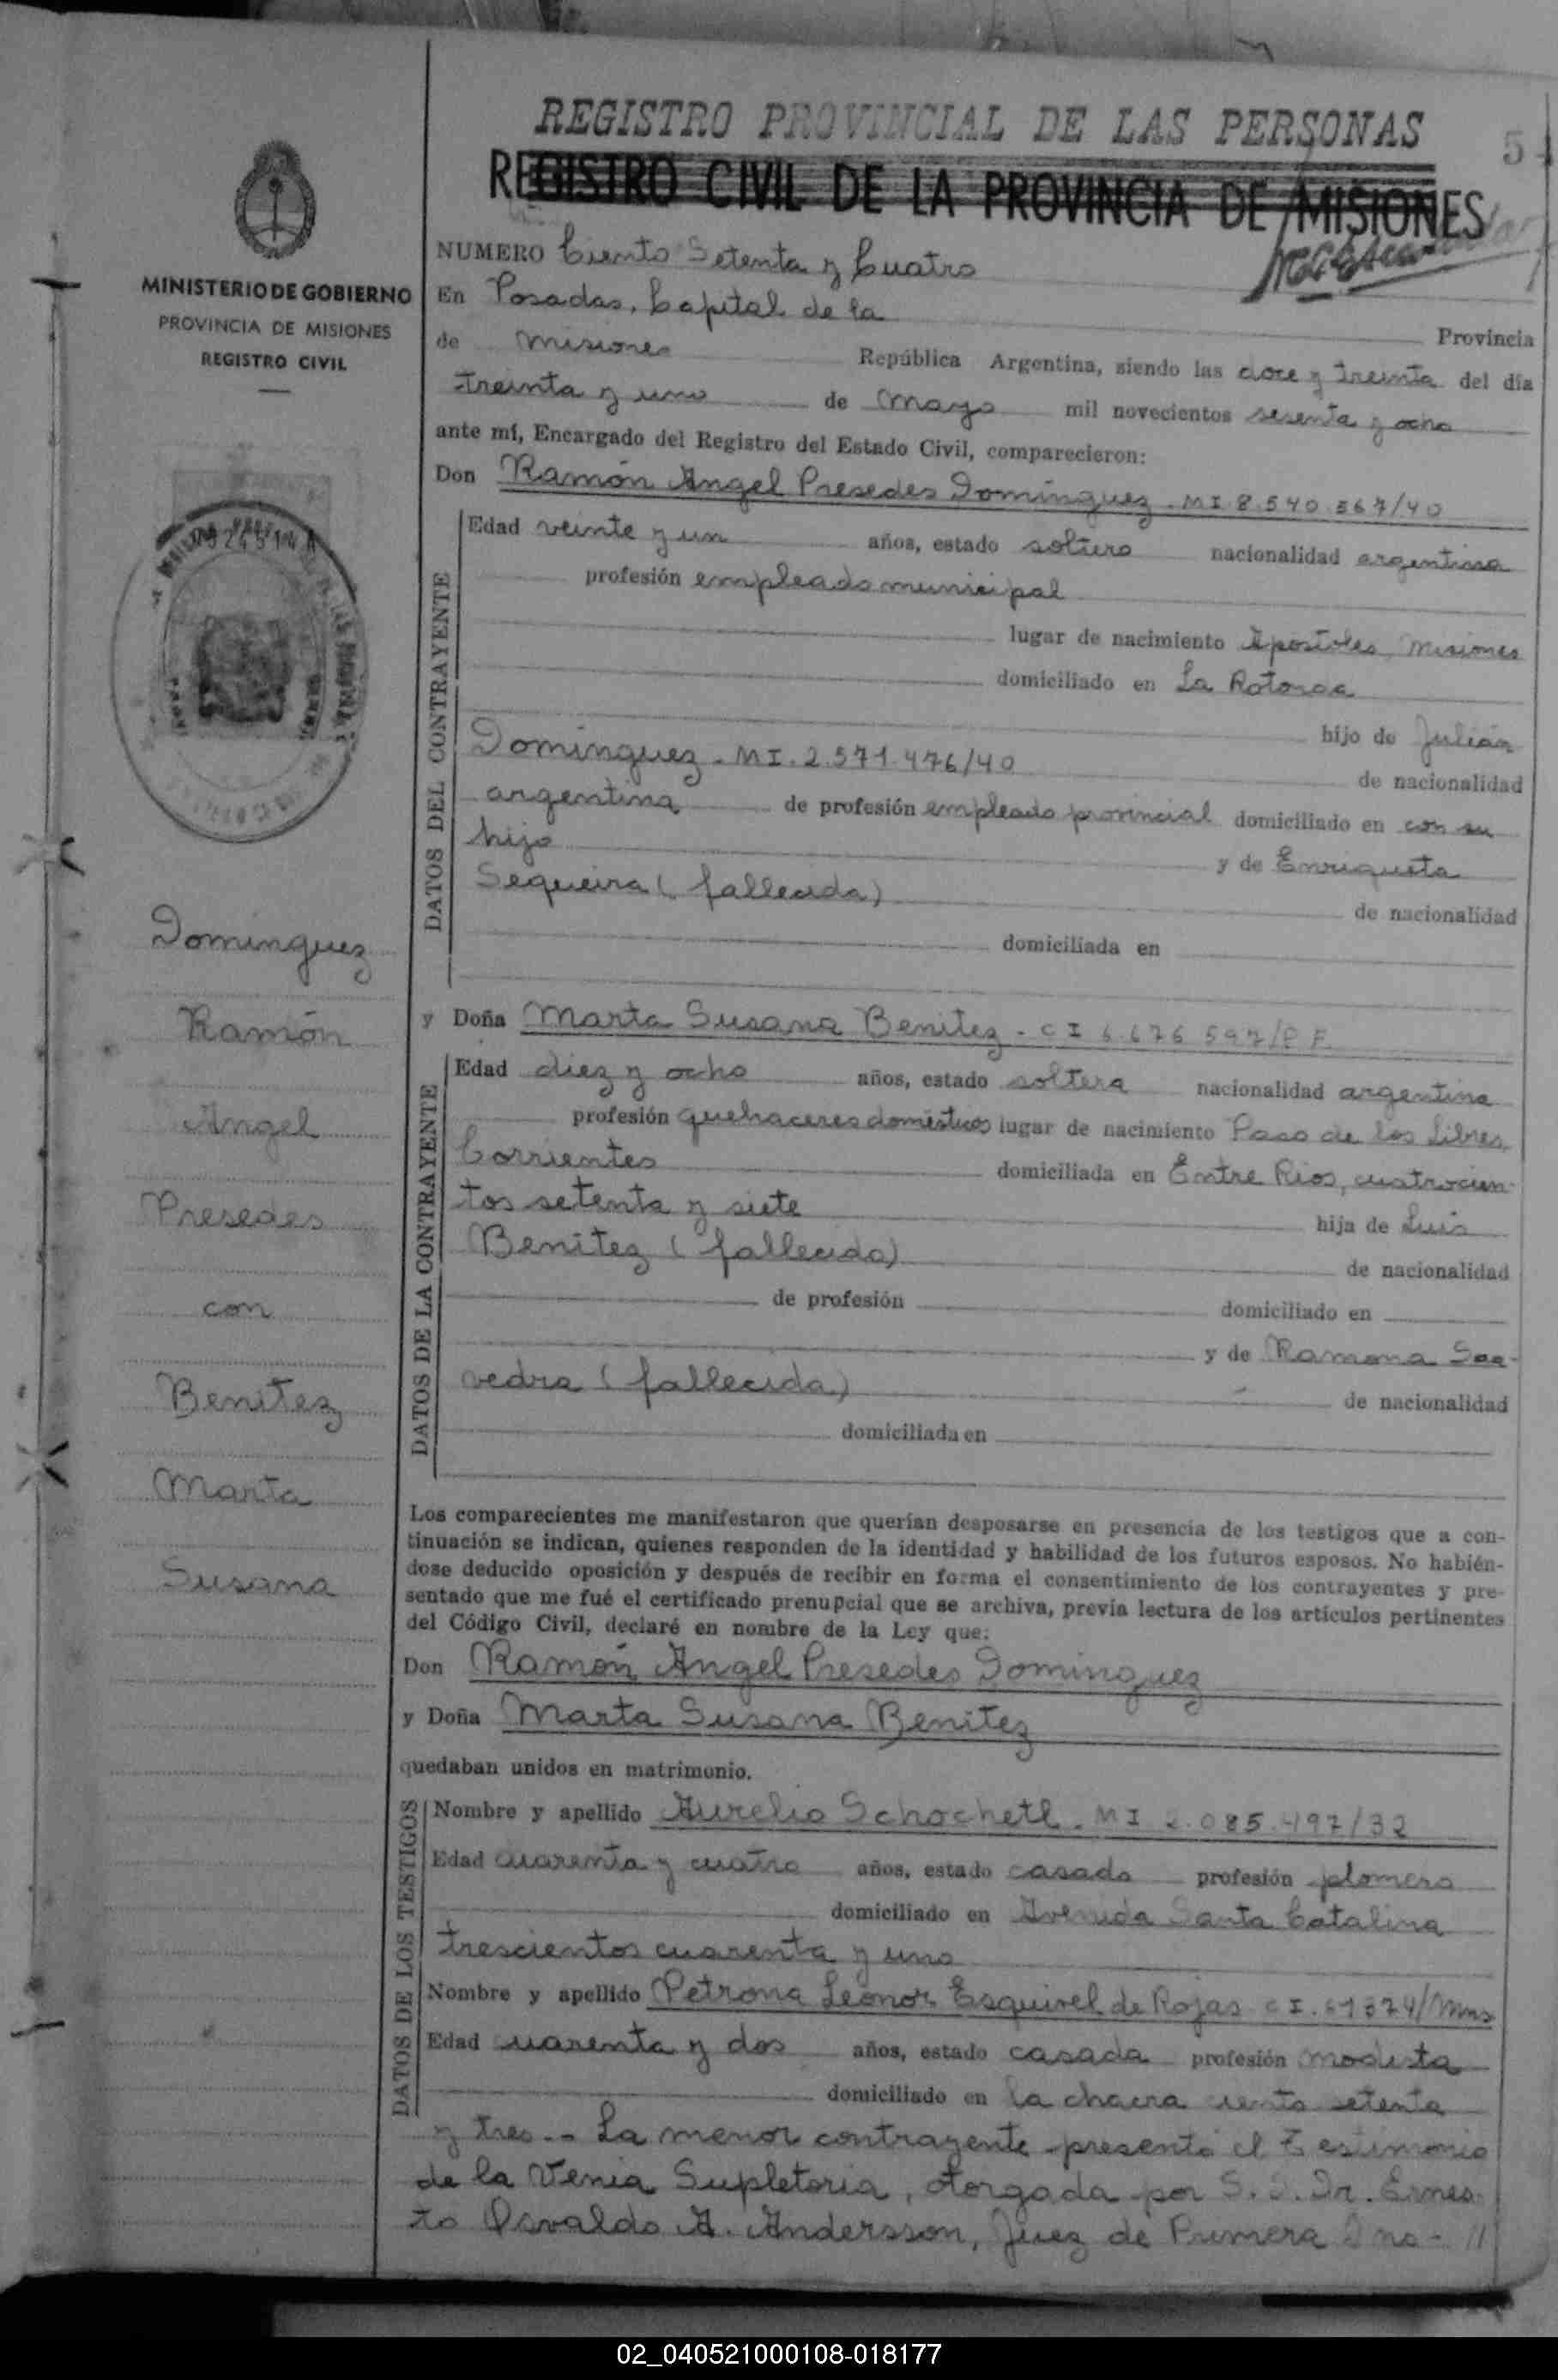 REGISTRO PROVINCIAL DE LAS PERSONAS
REGISTRO CIVIL DE LA PROVINCIA DE MISIONES
MINISTERIO DE GOBIERNO
PROVINCIA DE MISIONES
REGISTRO CIVIL
Dominguez
Ramón
Angel
Presedes
con
Benitez
Marta
Susana
NUMERO Ciento Setenta y Cuatro
En Posadas, Capital de la Provincia
de Misiones República Argentina, siendo las doce y treinta del día
treinta y uno de Mayo mil novecientos sesenta y ocho
ante mí, Encargado del Registro del Estado Civil, comparecieron:
Don Ramón Angel Presedes Domínguez. MI 8.540.567/40
DATOS DEL CONTRAYENTE
Edad veinte y un años, estado soltero nacionalidad argentina
profesión empleado municipal
lugar de nacimiento Apostoles, Misiones
domiciliado en La Rotonda
hijo de Julián
Domínguez. MI. 2.571.476/40 de nacionalidad
argentina de profesión empleado provincial domiciliado en con su
hijo y de Enriqueta
Sequeira (fallecida) de nacionalidad
domiciliada en
y Doña Marta Susana Benitez. CI 6.676.597/P.F.
DATOS DE LA CONTRAYENTE
Edad diez y ocho años, estado soltera nacionalidad argentina
profesión quehaceres domésticos lugar de nacimiento Paso de los Libres,
Corrientes domiciliada en Entre Rios, cuatrocien-
tos setenta y siete hija de Luis
Benitez (fallecido) de nacionalidad
de profesión domiciliado en
y de Ramona Saa-
vedra (fallecida) de nacionalidad
domiciliada en
Los comparecientes me manifestaron que querían desposarse en presencia de los testigos que a con-
tinuación se indican, quienes responden de la identidad y habilidad de los futuros esposos. No habién-
dose deducido oposición y después de recibir en forma el consentimiento de los contrayentes y pre-
sentado que me fué el certificado prenupcial que se archiva, previa lectura de los artículos pertinentes
del Código Civil, declaré en nombre de la Ley que:
Don Ramón Angel Presedes Dominguez
y Doña Marta Susana Benitez
quedaban unidos en matrimonio.
DATOS DE LOS TESTIGOS
Nombre y apellido Aurelio Schochetl. MI 2.085.497/32
Edad cuarenta y cuatro años, estado casado profesión plomero
domiciliado en Avenida Santa Catalina
trescientos cuarenta y uno
Nombre y apellido Petrona Leonor Esquivel de Rojas CI. 61374/Mns
Edad cuarenta y dos años, estado casada profesión modista
domiciliado en la chacra ciento setenta
y tres.- La menor contrayente presentó el Testimonio
de la Venia Supletoria, otorgada por S.S. Dr. Ernes-
to Osvaldo A. Andersson, Juez de Primera Ins- //
02_040521000108-018177